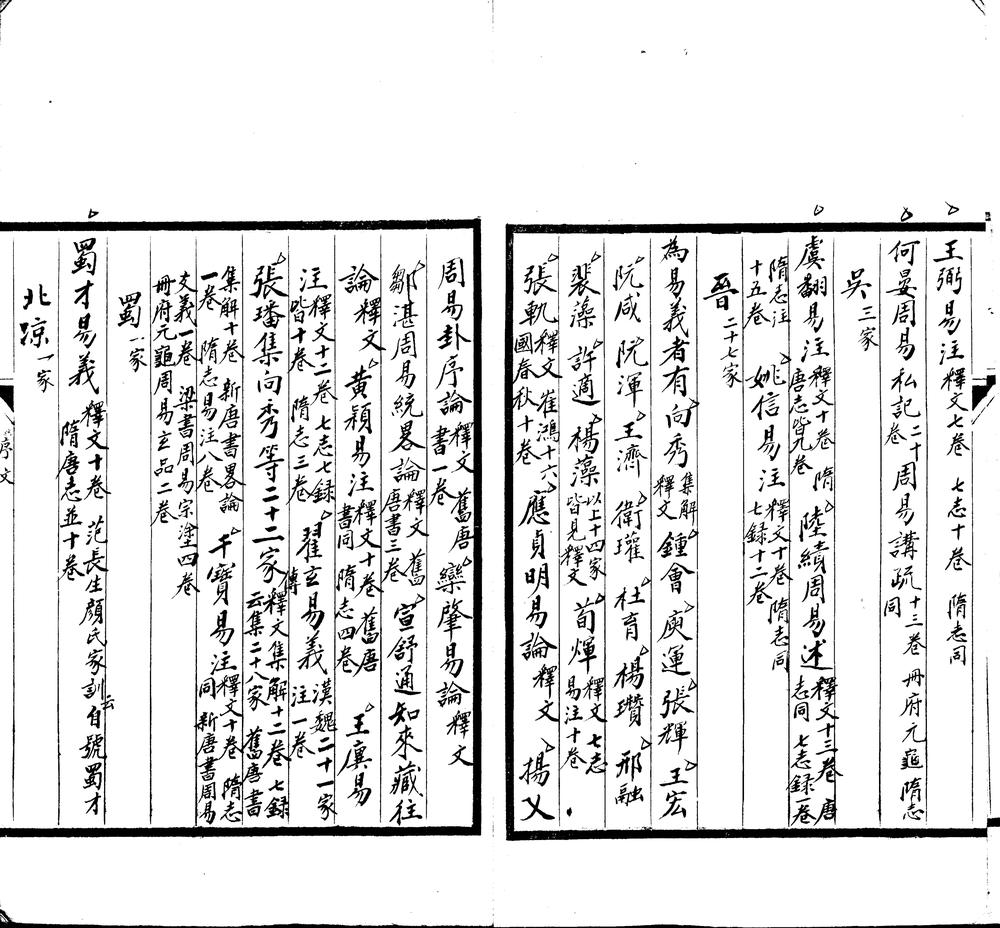 王弼易注釋文七卷 七志十卷 隋志同
何晏周易私記二十卷周易講疏十三卷 冊府元龜隋志同
吳三家
虞翻易注釋文十卷 隋唐志皆九卷陸績周易述釋文十三卷 唐志同 七志錄一卷
隋志注十五卷姚信易注釋文十卷 隋志同七錄十二卷
晉二十七家
為易義者有向秀集解釋文鍾會 庾運 張輝 王宏
阮咸 阮渾 王濟 衛瓘 杜育 楊瓚 邢融
裴藻 許適 楊藻以上十四家皆見釋文荀煇釋文七志易注十卷
張軌釋文崔鴻十六國春秋十卷應貞明易論釋文 揚乂
周易卦序論釋文 舊唐書一卷欒肇易論釋文
鄒湛周易統畧論釋文 舊唐書三卷宣舒通知來藏往
論釋文 黄穎易注釋文十卷 舊唐書同 隋志四卷王廙易
注釋文十二卷 七志七錄皆十卷 隋志三卷翟玄易義傳漢魏二十一家注一卷
張璠集向秀等二十二家釋文集解十二卷 七錄云集二十八家 舊唐書
集解十卷 新唐書畧論一卷 隋志易注八卷干寶易注釋文十卷 隋志同 新唐書周易
爻義一卷 梁書周易宗塗四卷冊府元龜周易玄品二卷
蜀一家
蜀才易義釋文十卷隋唐志並十卷 范長生顏氏家訓云自號蜀才
北涼一家
序文